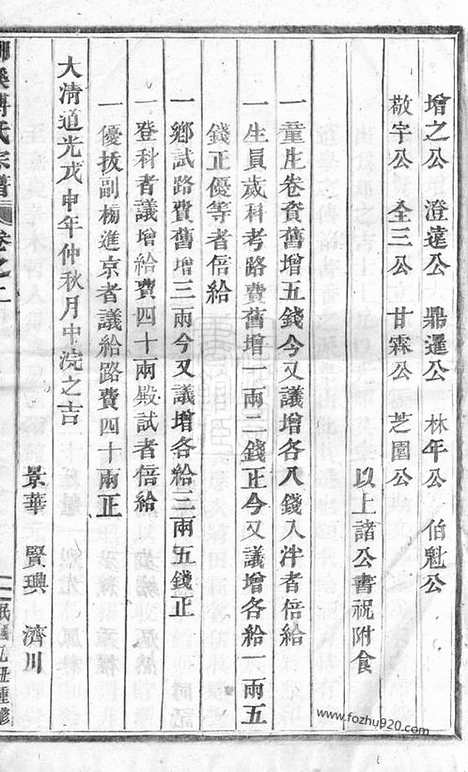 增之公　澄遠公　鼎邏公　林年公　伯魁公
敬宇公　全三公　甘霖公　芝圃公
以上諸公書祝附食
一童生卷資舊增五錢今又議增各八錢入泮者倍給
一生員歲科考路費舊增一兩二錢正今又議增各給一兩五
錢正優等者倍給
一鄉試路費舊增三兩今又議增各給三兩五錢正
一登科者議增給費四十兩殿試者倍給
一優拔副榜進京者議給路費四十兩正
大清道光戊申年仲秋月中浣之吉
景華　賢璵　濟川
氏宗譜　卷之二
www.fozhu920.com